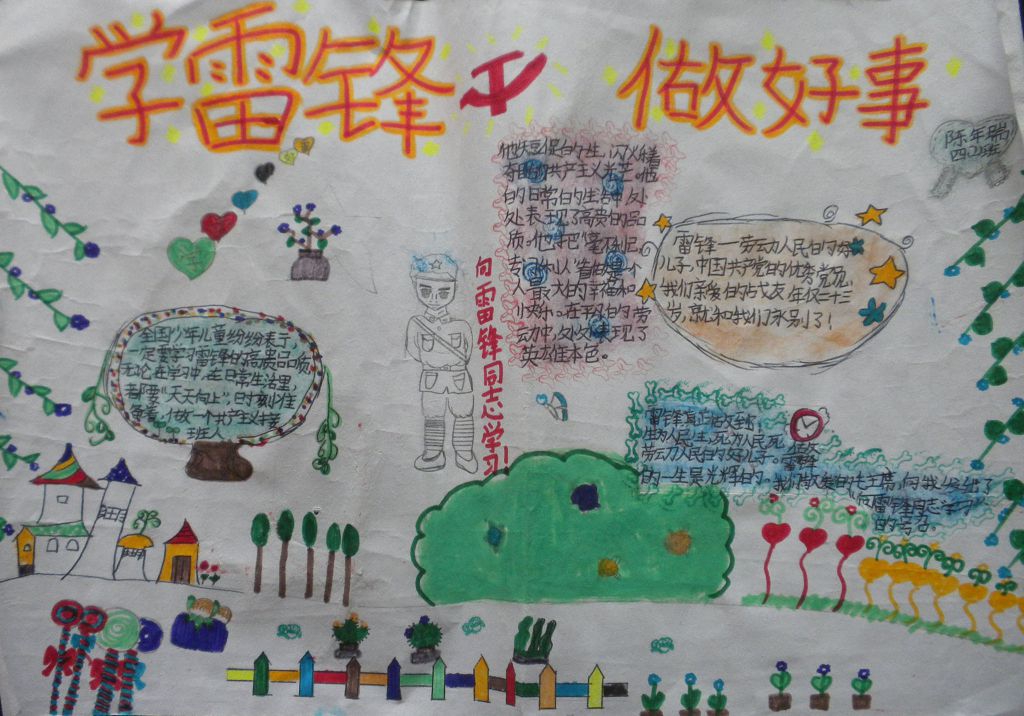 学雷锋 做好事
陈年瑞
四(2)班
他失豆促白勺生,闪火着
奇国的共产主义光芒。他
的日常白勺生活中,处
处表现了高贵的品
质。他把"毫不利己
专门利人"看白勺是一个
人最大的幸福和
快乐。在平白勺劳
动中处处表现了
英雄本色。
雷锋一劳动人民白勺好
儿子,中国共产党的优秀党员,
我们亲後白勺战友年仅二十三
岁,就和我们永别了!
向雷锋同志学习!
全国少年儿童纷纷表示
一定要学习雷锋白勺高贵品质,
无论在学习中,在日常生活里,
都要"天天向上",时刻准
备着,做一个共产主义接
班人
雷锋真正做到了
生为人民生,死为人民死
劳动人民白勺好儿子 雷锋
白勺一生是光辉白勺,我们敬爱白勺毛主席,向我发出了
向雷锋同志学习
的号召。